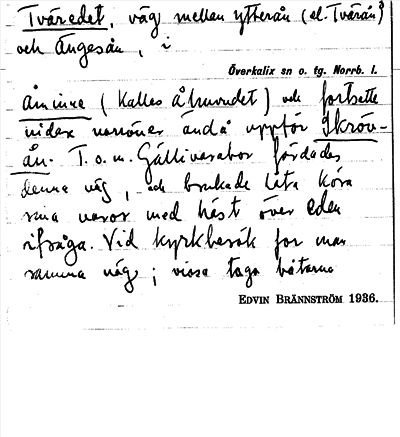 Tväredet, väg mellan ytterån (el. Tvärån?)
och Ängesån, i
Överkalix sn o. tg. Norrb. l.
åminne (kallas Åhuvudet) och fortsette
vidare norröver ändå uppför Skröv-
ån. T.o.m. Gällivarebor färdades
denna väg, och brukade låta köra
sina varor med häst över eden
ifråga. Vid kyrkbesök for man
samma väg; vissa togo båtarna
EDVIN BRÄNNSTRÖM 1936.